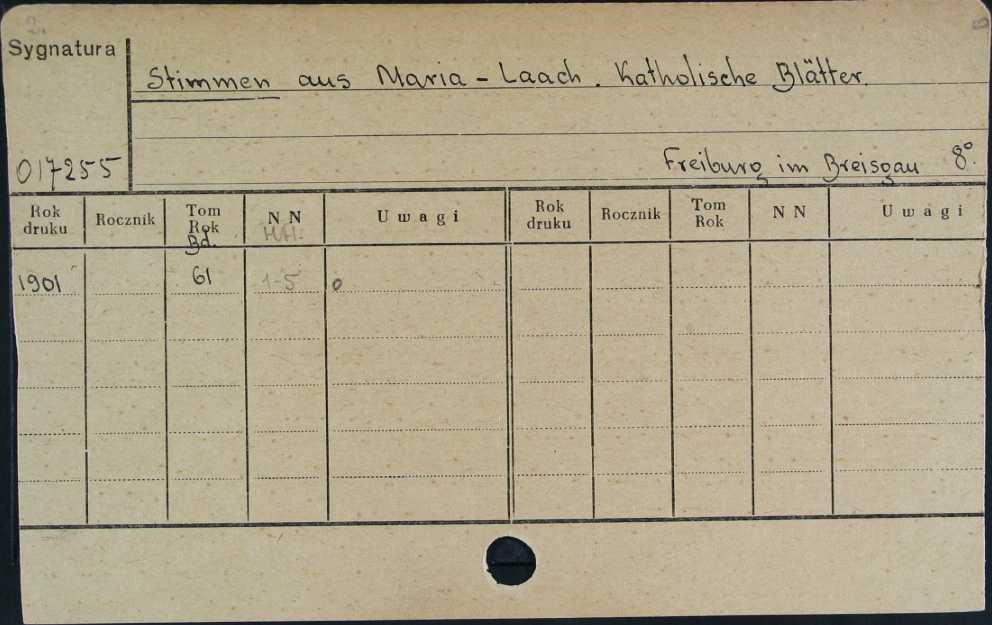 2.
Sygnatura
Stimmen aus Maria - Laach. Katholische Blätter.
017255
Freiburg im Breisgau 8°.
Rok druku Rocznik Tom Rok Bd. NN H.H. Uwagi Rok druku Rocznik Tom Rok NN Uwagi
1901 61 1-5 o